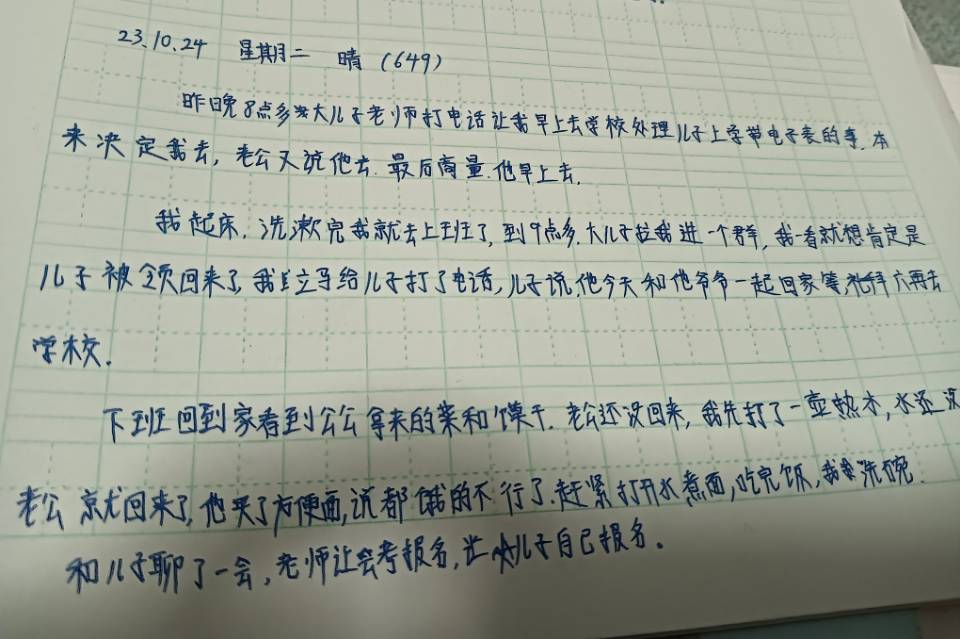 23.10.24 星期二 晴 (649)
昨晚8点多大儿子老师打电话让我早上去学校处理儿子上学带电子表的事.本
来决定我去,老公又说他去.最后商量.他早上去.
我起床.洗漱完我就去上班了,到9点多.大儿子拉我进一个群,我一看就想肯定是
儿子被领回来了,我立马给儿子打了电话,儿子说,他今天和他爷爷一起回家等,礼拜六再去
学校.
下班回到家看到公公拿来的菜和馍干.老公还没回来,我先打了一壶热水,水还没
老公就回来了,他买了方便面,说都饿的不行了.赶紧打开水煮面,吃完饭,我洗碗.
和儿子聊了一会,老师让会考报名,让大儿子自己报名.